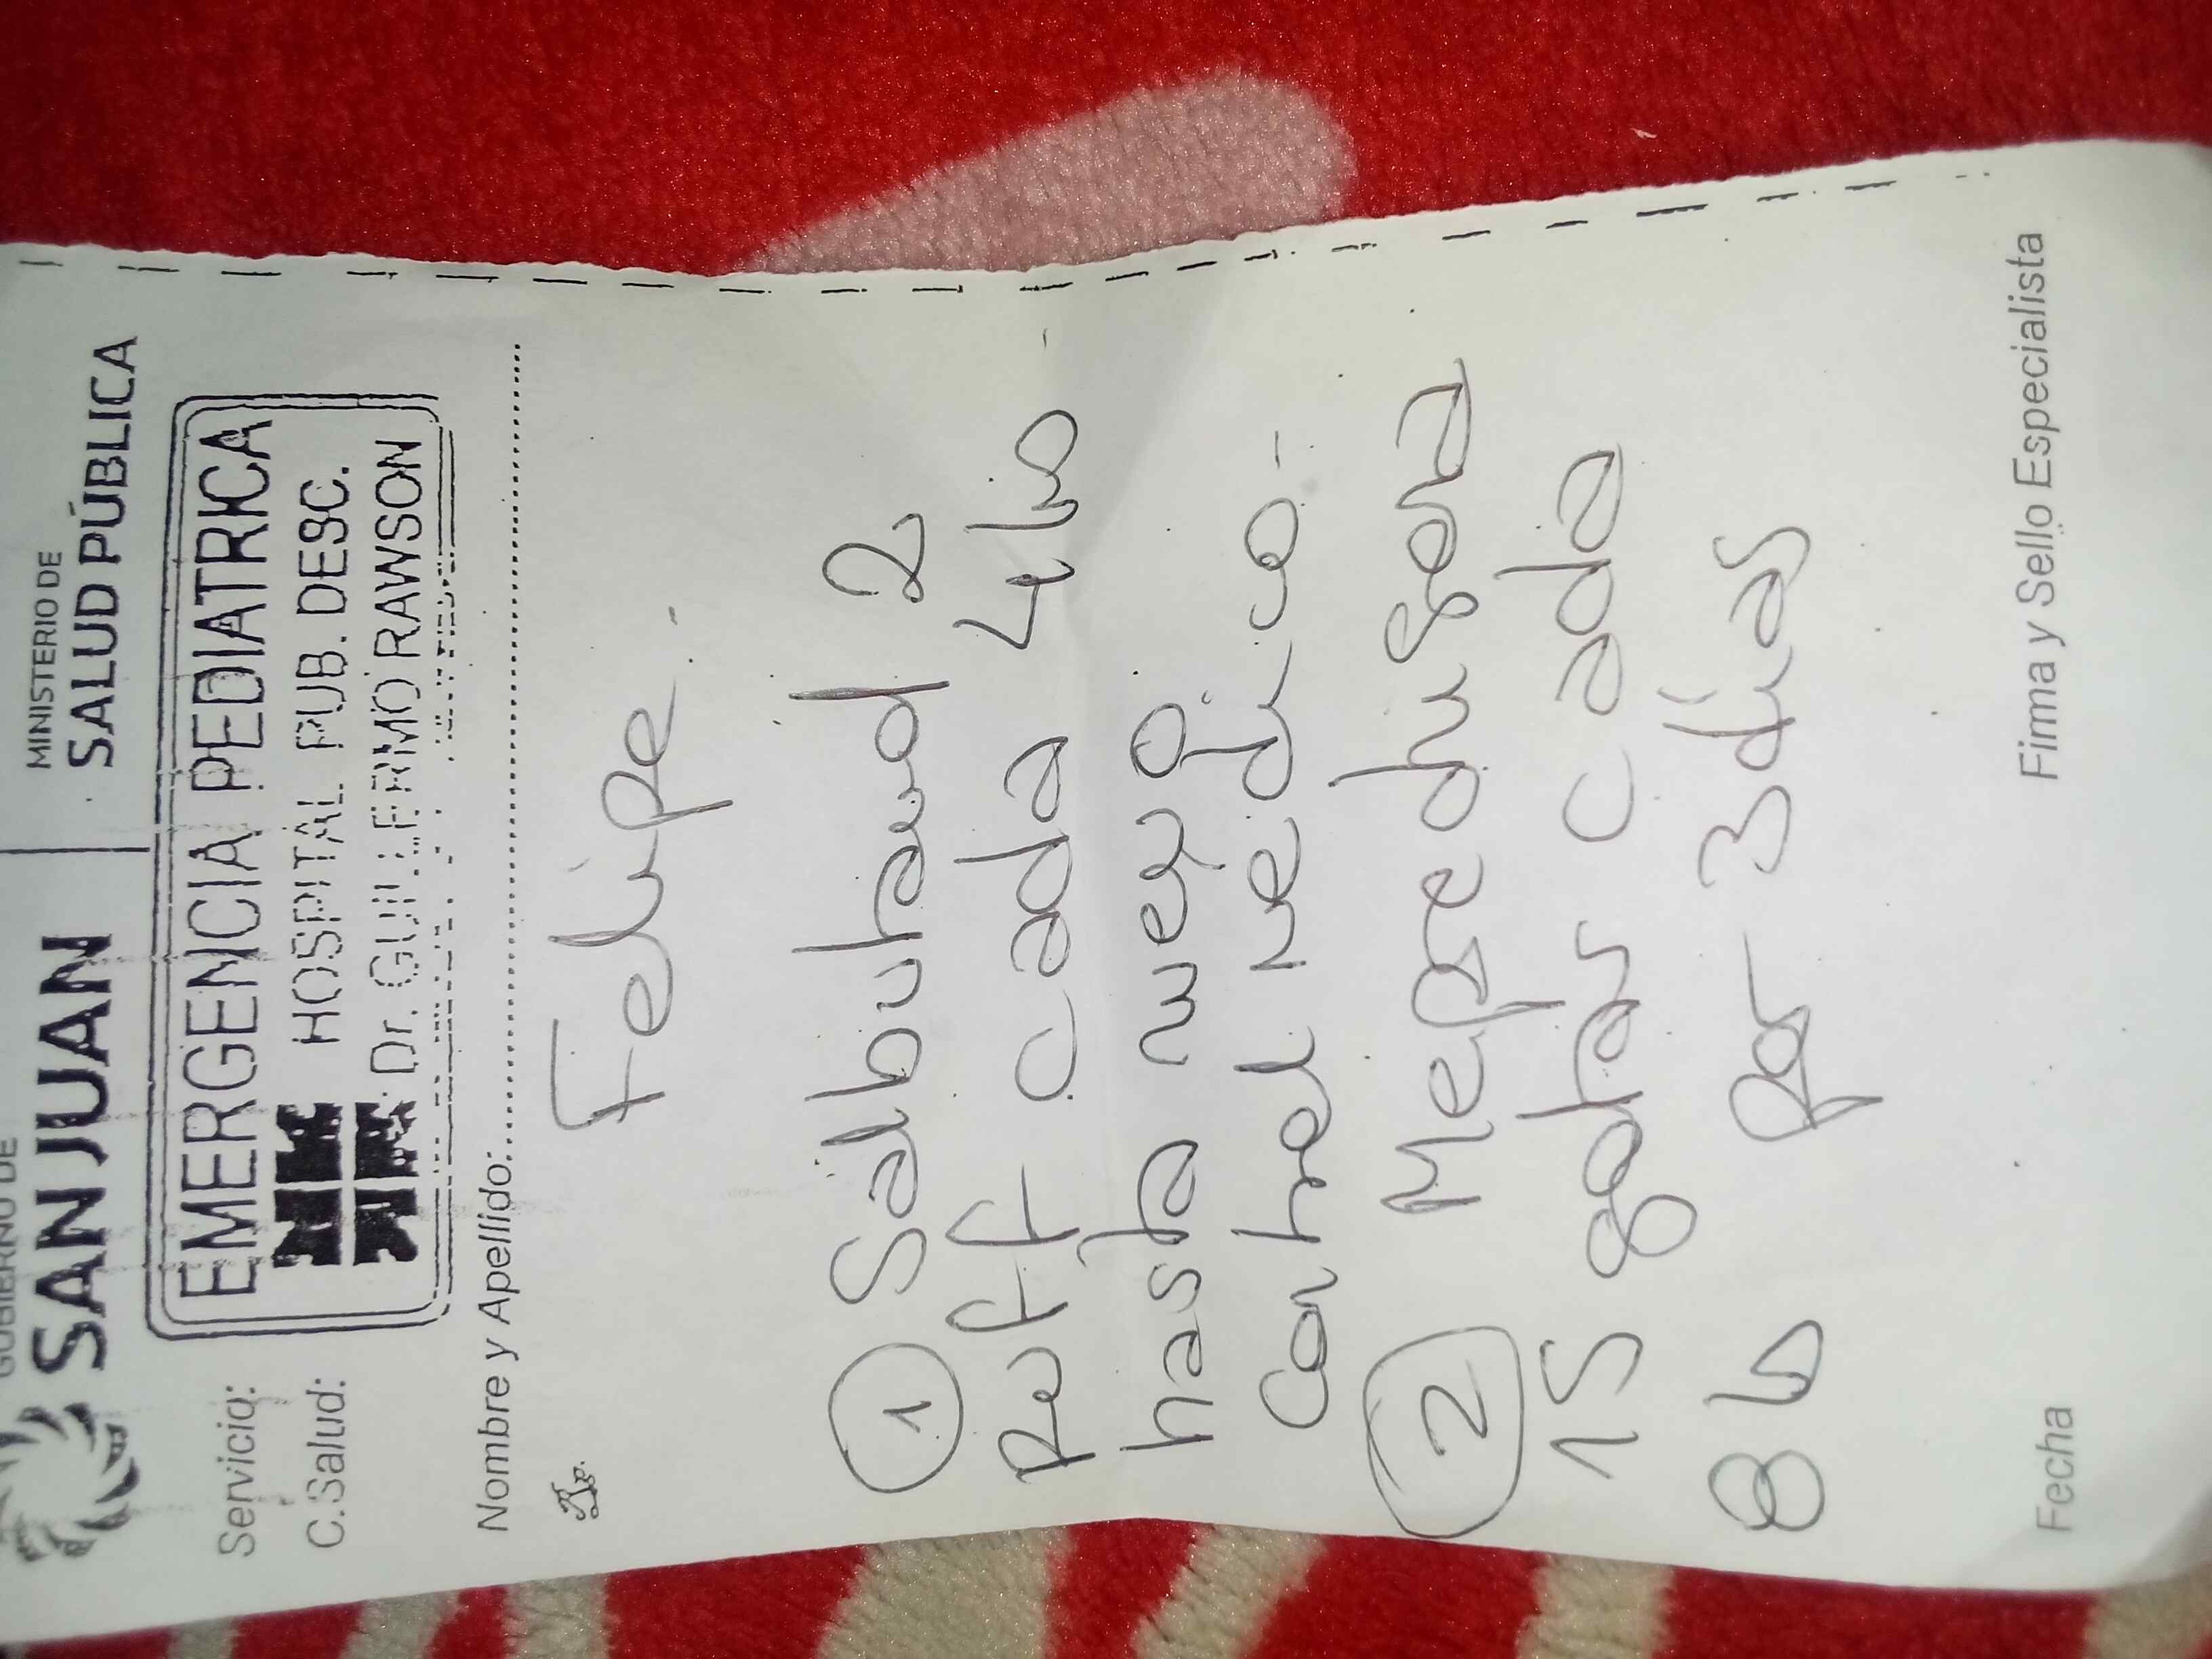 GOBIERNO DE
SAN JUAN
MINISTERIO DE
SALUD PÚBLICA
Servicio:
C.Salud:
EMERGENCIA PEDIATRICA
HOSPITAL PUB. DESC.
Dr. GUILLERMO RAWSON
Nombre y Apellido:
Felipe.
Rp.
① Salbutamol 2
Puff cada 4 hs
hasta nuevo
control medico.-
② Meprednisona
15 gotas cada
8 h por 3 días
Fecha
Firma y Sello Especialista